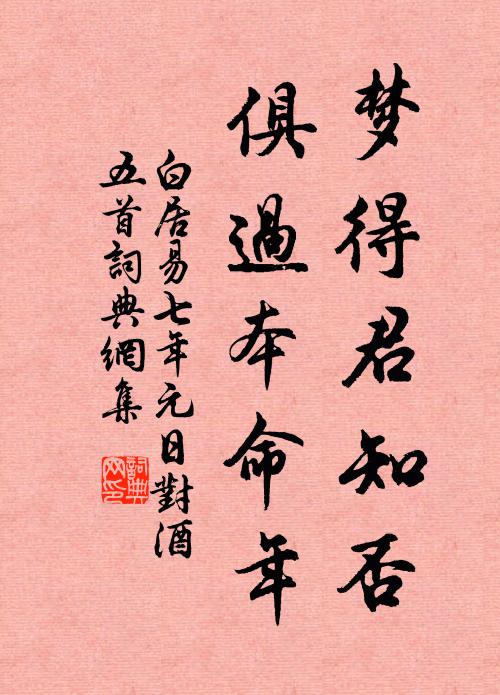 梦得君知否
俱過本命年
白居易七年元日對酒
五首詞典網集
詞典
网印